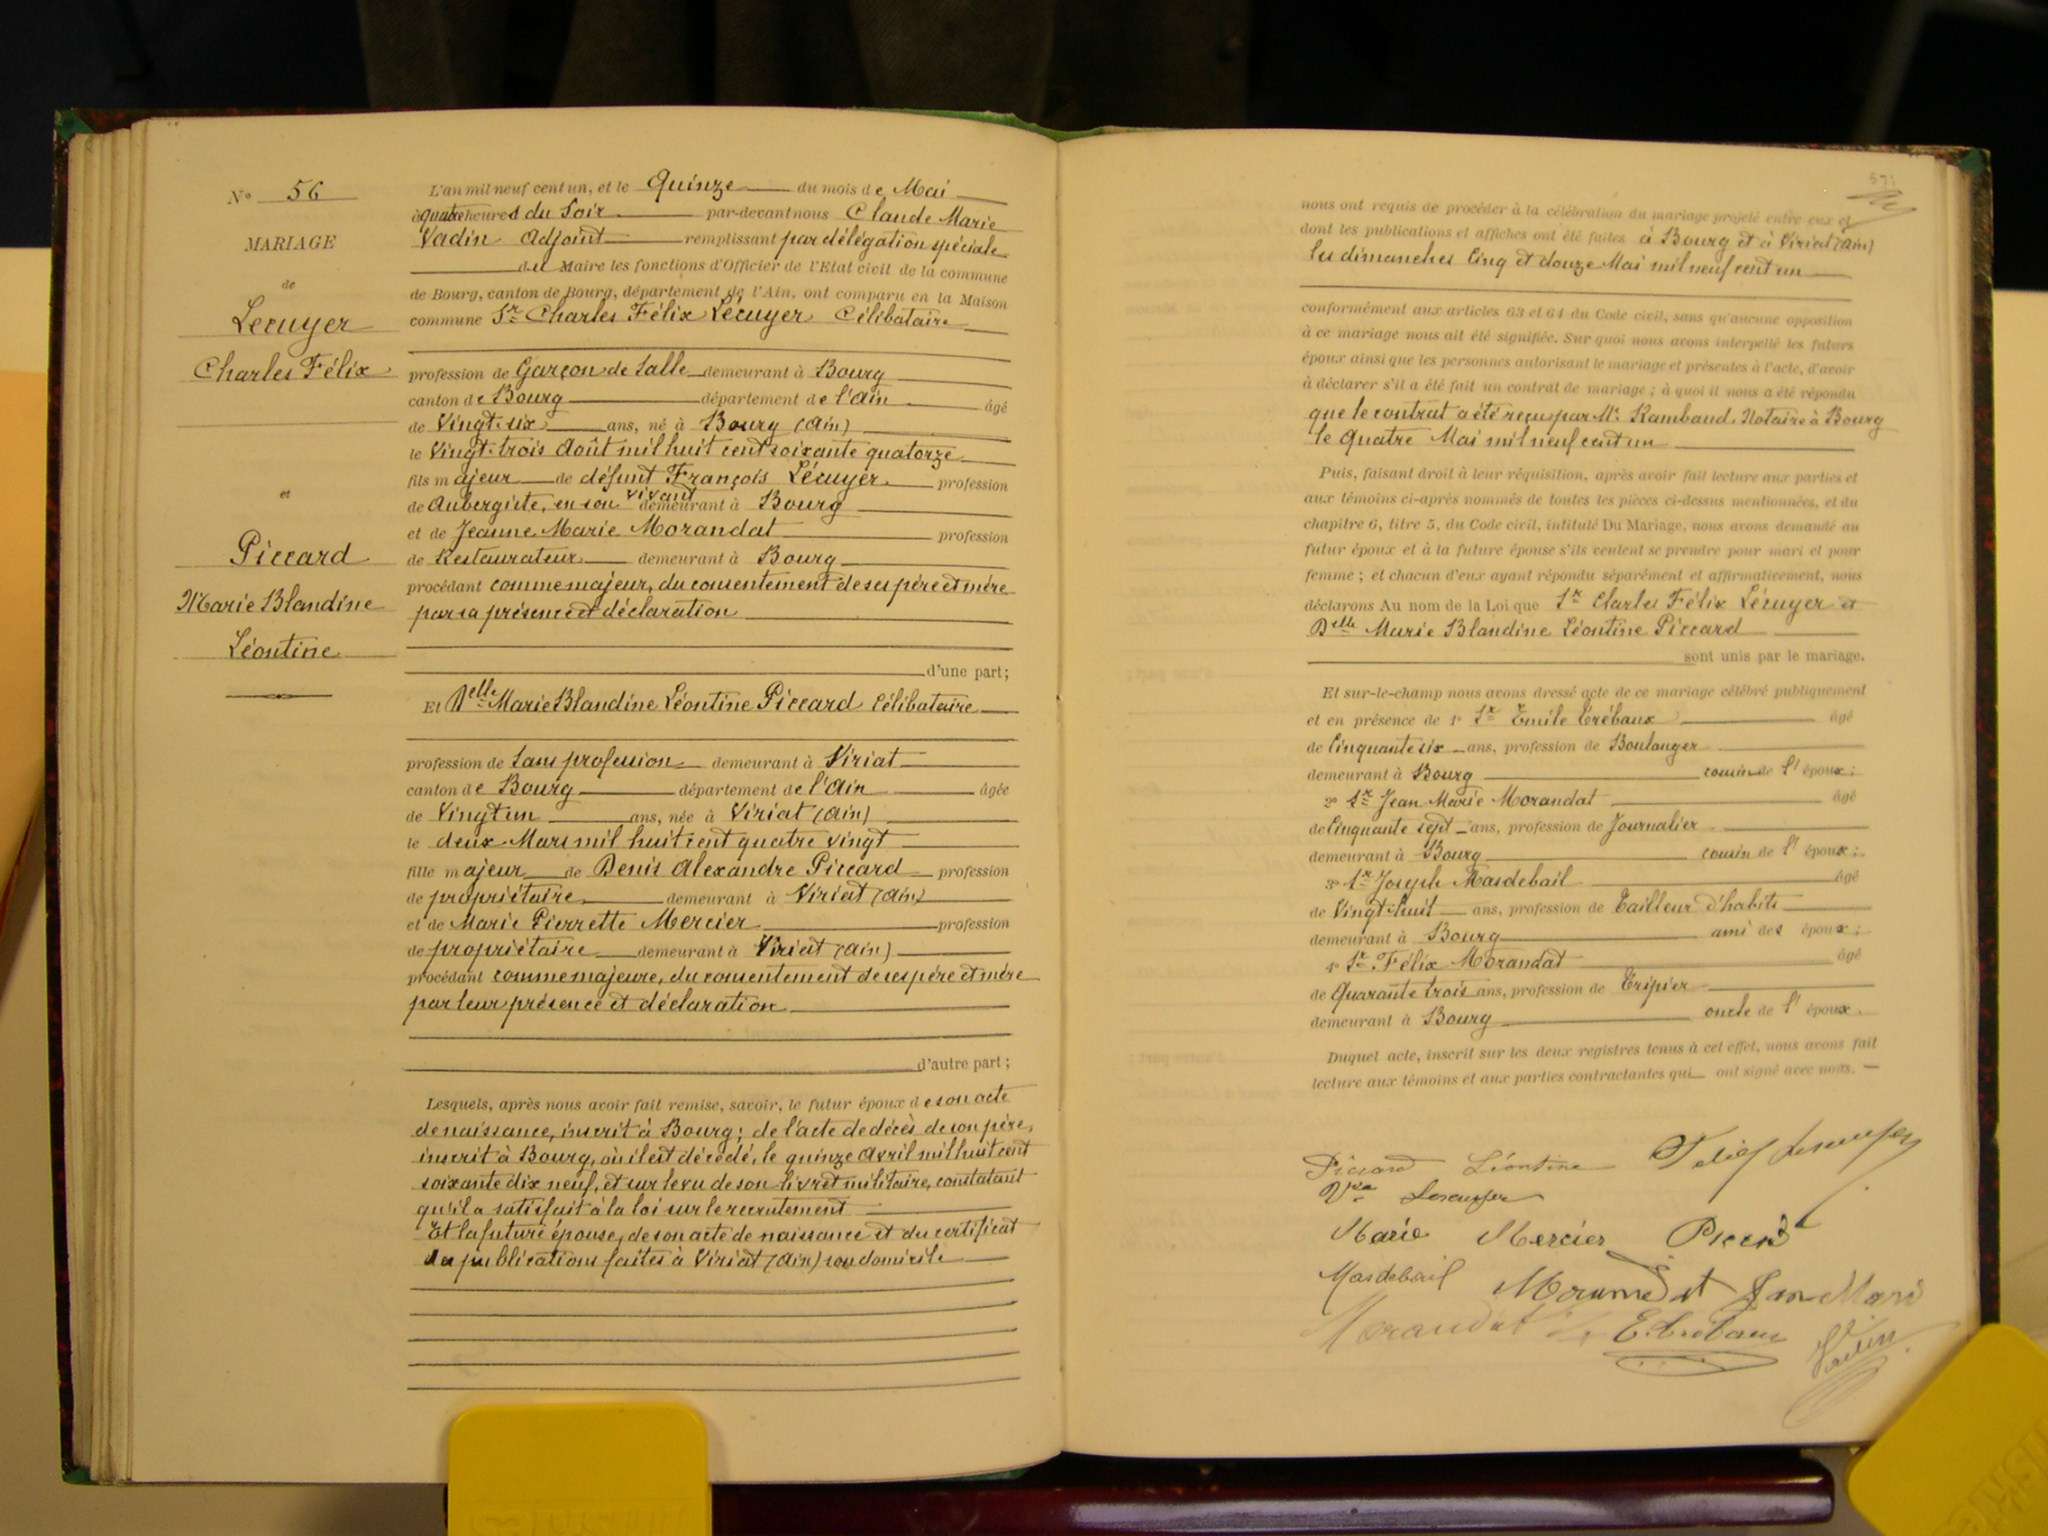 N° 56
MARIAGE
de
Lecuyer
Charles Félix
et
Piccard
Marie Blandine
Léontine
L'an mil neuf cent un, et le Quinze du mois de Mai
à quatre heures du Soir par-devant nous Claude Marie
Vadin Adjoint remplissant par délégation spéciale
du Maire les fonctions d'Officier de l'Etat civil de la commune
de Bourg, canton de Bourg, département de l'Ain, ont comparu en la Maison
commune Sr Charles Félix Lécuyer Célibataire
profession de Garçon de Salle demeurant à Bourg
canton de Bourg département de l'Ain âgé
de Vingt-six ans, né à Bourg (Ain)
le Vingt-trois Août mil huit cent soixante quatorze
fils majeur de défunt François Lécuyer profession
de Aubergiste, en son vivant demeurant à Bourg
et de Jeanne Marie Morandat profession
de Restaurateur demeurant à Bourg
procédant comme majeur, du consentement de ses père et mère
par sa présence et déclaration
d'une part;
Et Delle Marie Blandine Léontine Piccard Célibataire
profession de Sans profession demeurant à Viriat
canton de Bourg département de l'Ain âgée
de Vingt un ans, née à Viriat (Ain)
le deux Mars mil huit cent quatre vingt
fille majeur de Denis Alexandre Piccard profession
de propriétaire demeurant à Viriat (Ain)
et de Marie Pierrette Mercier profession
de propriétaire demeurant à Viriat (Ain)
procédant comme majeure, du consentement de ses père et mère
par leur présence et déclaration
d'autre part;
Lesquels, après nous avoir fait remise, savoir, le futur époux de son acte
de naissance, inscrit à Bourg; de l'acte de décès de son père,
inscrit à Bourg, où il est décédé, le quinze Avril mil huit cent
soixante dix neuf, et sur le vu de son livret militaire, constatant
qu'il a satisfait à la loi sur le recrutement
Et la future épouse, de son acte de naissance et du certificat
des publications faites à Viriat (Ain) son domicile
571
nous ont requis de procéder à la célébration du mariage projeté entre eux et
dont les publications et affiches ont été faites à Bourg et à Viriat (Ain)
les dimanches Cinq et douze Mai mil neuf cent un
conformément aux articles 63 et 64 du Code civil, sans qu'aucune opposition
à ce mariage nous ait été signifiée. Sur quoi nous avons interpellé les futurs
époux ainsi que les personnes autorisant le mariage et présentes à l'acte, d'avoir
à déclarer s'il a été fait un contrat de mariage; à quoi il nous a été répondu
que le contrat a été reçu par Me Rambaud, Notaire à Bourg
le Quatre Mai mil neuf cent un
Puis, faisant droit à leur réquisition, après avoir fait lecture aux parties et
aux témoins ci-après nommés de toutes les pièces ci-dessus mentionnées, et du
chapitre 6, titre 5, du Code civil, intitulé Du Mariage, nous avons demandé au
futur époux et à la future épouse s'ils veulent se prendre pour mari et pour
femme; et chacun d'eux ayant répondu séparément et affirmativement, nous
déclarons Au nom de la Loi que Sr Charles Félix Lécuyer et
Delle Marie Blandine Léontine Piccard
sont unis par le mariage.
Et sur-le-champ nous avons dressé acte de ce mariage célébré publiquement
et en présence de 1° Sr Emile Trébaux âgé
de Cinquante six ans, profession de Boulanger
demeurant à Bourg cousin de l'époux;
2° Sr Jean Marie Morandat âgé
de Cinquante sept ans, profession de Journalier
demeurant à Bourg cousin de l'époux;
3° Sr Joseph Masdebail âgé
de Vingt-huit ans, profession de Tailleur d'habits
demeurant à Bourg ami des époux;
4° Sr Félix Morandat âgé
de Quarante trois ans, profession de Tripier
demeurant à Bourg oncle de l'époux.
Duquel acte, inscrit sur les deux registres tenus à cet effet, nous avons fait
lecture aux témoins et aux parties contractantes qui ont signé avec nous.
Piccard Léontine Félix Lecuyer
Vve Lecuyer
Marie Mercier Piccard
Masdebail Morandat Jean Marie
Morandat E. Trebaux Vadin